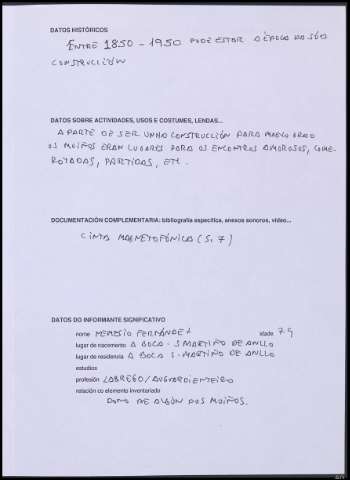 DATOS HISTÓRICOS
ENTRE 1850 - 1950 PODE ESTAR A ÉPOCA DA SÚA
CONSTRUCCIÓN
DATOS SOBRE ACTIVIDADES, USOS E COSTUMES, LENDAS...
A PARTE DE SER UNHA CONSTRUCCIÓN PARA MOER GRAO
OS MOIÑOS ERAN LUGARES PARA OS ENCONTROS AMOROSOS, COME-
ROTADAS, PARTIDAS, ETC.
DOCUMENTACIÓN COMPLEMENTARIA: bibliografía específica, anexos sonoros, vídeo...
CINTA MAGNETOFÓNICA (S. 7)
DATOS DO INFORMANTE SIGNIFICATIVO
nome NEMESIO FERNÁNDEZ idade 79
lugar de nacemento A BOCA - S MARTIÑO DE ANLLO
lugar de residencia A BOCA S. MARTIÑO DE ANLLO
estudios
profesión LABREGO/AUGARDIENTEIRO
relación co elemento inventariado
DONO DE ALGÚN DOS MOIÑOS.